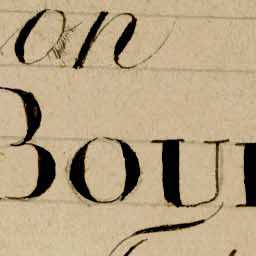 on
Bou